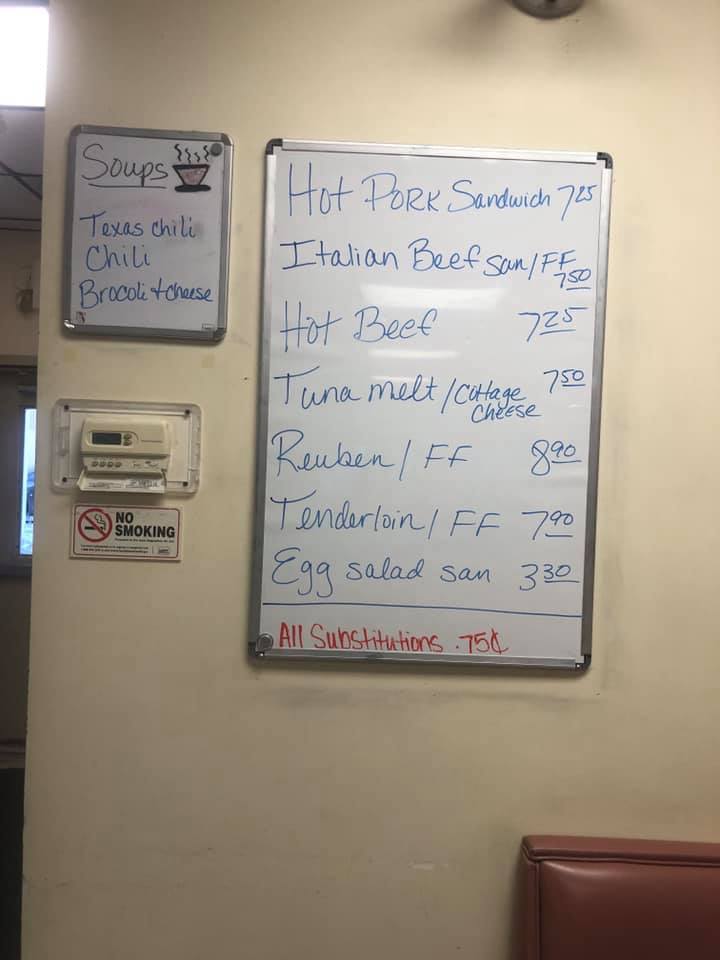 Soups
Texas chili
Chili
Brocoli + cheese
Hot PORK Sandwich 7 25
Italian Beef san/FF
7 50
Hot Beef 7 25
Tuna melt / Cottage 7 50
Cheese
Reuben / FF 8 90
Tenderloin / FF 7 90
Egg salad san 3 30
All Substitutions .75¢
NO
SMOKING